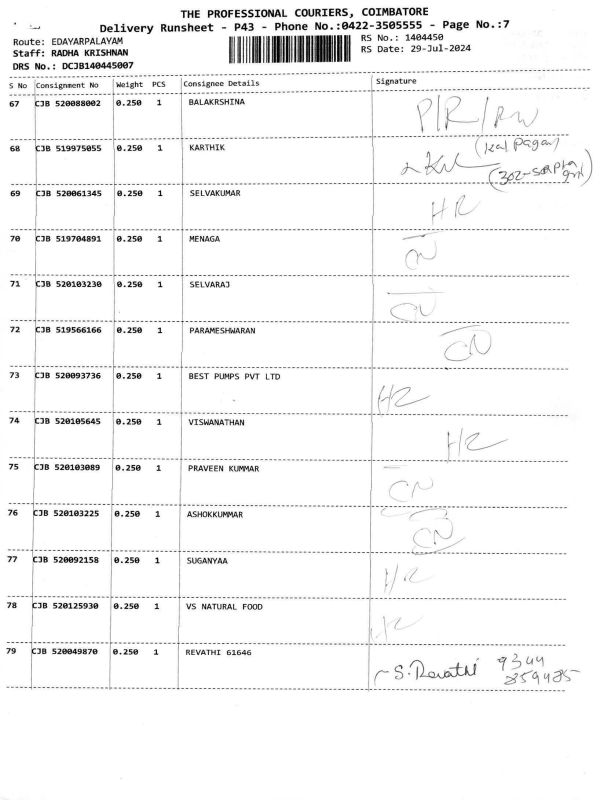 THE PROFESSIONAL COURIERS, COIMBATORE
Delivery Runsheet - P43 - Phone No.:0422-3505555 - Page No.:7
Route: EDAYARPALAYAM
RS No.: 1404450
Staff: RADHA KRISHNAN
RS Date: 29-Jul-2024
DRS No.: DCJB140445007
S No Consignment No Weight PCS Consignee Details Signature
67 CJB 520088002 0.250 1 BALAKRSHINA P/R/
68 CJB 519975055 0.250 1 KARTHIK
69 CJB 520061345 0.250 1 SELVAKUMAR HR
70 CJB 519704891 0.250 1 MENAGA CN
71 CJB 520103230 0.250 1 SELVARAJ CN
72 CJB 519566166 0.250 1 PARAMESHWARAN CN
73 CJB 520093736 0.250 1 BEST PUMPS PVT LTD HR
74 CJB 520105645 0.250 1 VISWANATHAN HR
75 CJB 520103089 0.250 1 PRAVEEN KUMMAR CN
76 CJB 520103225 0.250 1 ASHOKKUMMAR CN
77 CJB 520092158 0.250 1 SUGANYAA HR
78 CJB 520125930 0.250 1 VS NATURAL FOOD HR
79 CJB 520049870 0.250 1 REVATHI 61646 S. Revathi 9344
859485